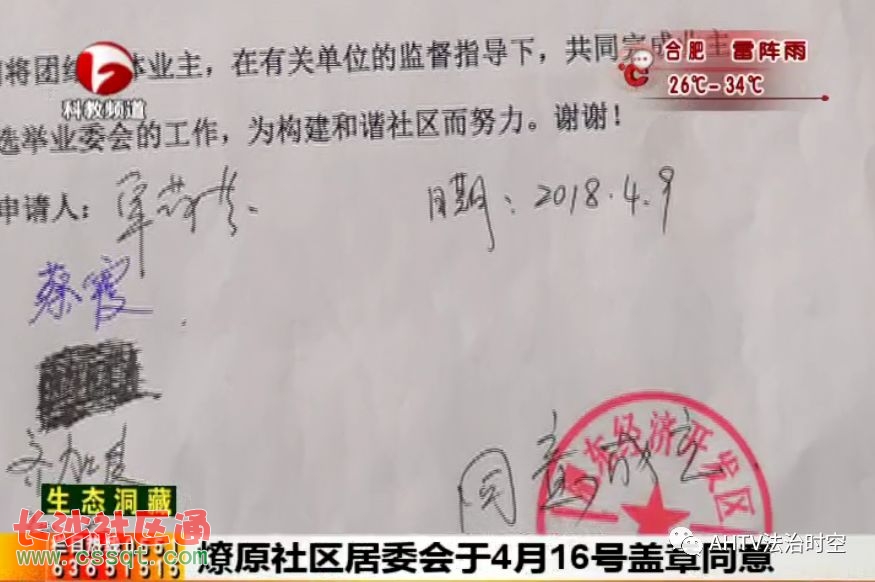 将团结 体业主，在有关单位的监督指导下，共同完成业主
选举业委会的工作，为构建和谐社区而努力。谢谢！
科教频道
合肥 雷阵雨
26℃-34℃
申请人：
日期：2018.4.9
蔡霞
同意成立
东经济开发区
生态洞藏
长沙社区通
www.cssqt.com
燎原社区居委会于4月16号盖章同意
AHTV法治时空